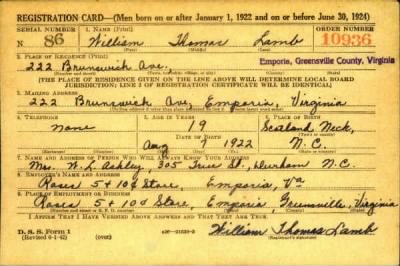 REGISTRATION CARD—(Men born on or after January 1, 1922 and on or before June 30, 1924)
SERIAL NUMBER 1. NAME (Print) ORDER NUMBER
N 86 William Thomas Lamb 10936
(First) (Middle) (Last)
2. PLACE OF RESIDENCE (Print) Emporia, Greensville County, Virginia
222 Brunswick Ave,
(Number and street) (Town, township, village, or city) (County) (State)
[THE PLACE OF RESIDENCE GIVEN ON THE LINE ABOVE WILL DETERMINE LOCAL BOARD
JURISDICTION; LINE 2 OF REGISTRATION CERTIFICATE WILL BE IDENTICAL]
3. MAILING ADDRESS
222 Brunswick Ave, Emporia, Virginia
4. TELEPHONE 5. AGE IN YEARS 6. PLACE OF BIRTH
none 19 Scotland Neck,
DATE OF BIRTH (Town or county)
Aug 7 1922 N.C.
(Mo.) (Day) (Yr.) (State or country)
7. NAME AND ADDRESS OF PERSON WHO WILL ALWAYS KNOW YOUR ADDRESS
Mrs. W. L. Ashley, 305 St., Durham N.C.
8. EMPLOYER'S NAME AND ADDRESS
Roses 5 + 10¢ Store, Emporia, Va
9. PLACE OF EMPLOYMENT OR BUSINESS
Roses 5 + 10¢ Store, Emporia, Greensville, Virginia
(Number and street or R. F. D. number) (Town) (County) (State)
I AFFIRM THAT I HAVE VERIFIED ABOVE ANSWERS AND THAT THEY ARE TRUE.
D. S. S. Form 1 William Thomas Lamb
(Revised 6-1-42) (Registrant's signature)